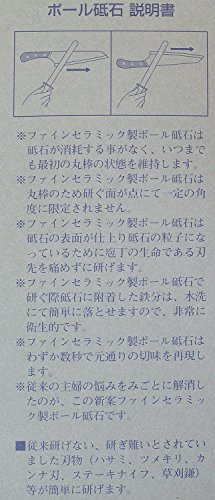 ポール砥石 説明書
※ファインセラミック製ポール砥石は
砥石が消耗する事がなく、いつまで
も最初の丸棒の状態を維持します。
※ファインセラミック製ポール砥石は
丸棒のため研ぐ面が点にて一定の角
度に限定されません。
※ファインセラミック製ポール砥石は
砥石の表面が仕上り砥石の粒子にな
っているために庖丁の生命である刃
先を痛めずに研げます。
※ファインセラミック製ポール砥石で
研ぐ際砥石に附着した鉄分は、水洗
にて簡単に落とせますので、非常に
衛生的です。
※ファインセラミック製ポール砥石は
わずか数秒で元通りの切味を再現し
ます。
※従来の主婦の悩みをみごとに解消し
たのが、この新案ファインセラミッ
ク製ポール砥石です。
■従来研げない、研ぎ難いとされてい
ました刃物（ハサミ、ツメキリ、カ
ンナ刃、ステーキナイフ、草刈鎌）
等が簡単に研げます。